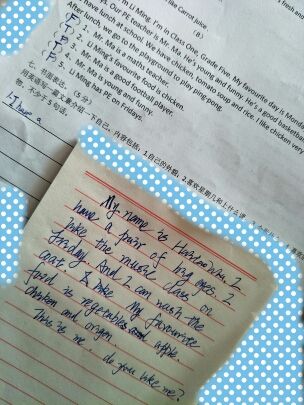 like Carrot juice
(B)
Li Ming. I'm in Class One, Grade Five. My favourite day is Monda
PE teacher is Mr. Ma. He's young and funny. He's a good basketba
have lunch at school. We have chicken, tomato soup and rice. I like chicken very
After lunch, we go to the playground to play ping-pong.
1. Mr. Ma is a math teacher.
2. Li Ming's favourite food is chicken.
3. Mr. Ma is young and funny.
4. Mr. Ma is a good football player.
5. Li Ming has PE on Fridays.
七、书面表达。(5分)
用英语写一篇文章介绍一下自己，内容包括：1.自己的外貌；2.喜欢星期几和上什么课；
物。不少于5句话。
My name is
I
have a pair of big eyes. I
like the music class on
Friday. And I can wash the
coat. & bike. My favourite
food is vegetables and apple.
chicken and
This is me. do you like me?